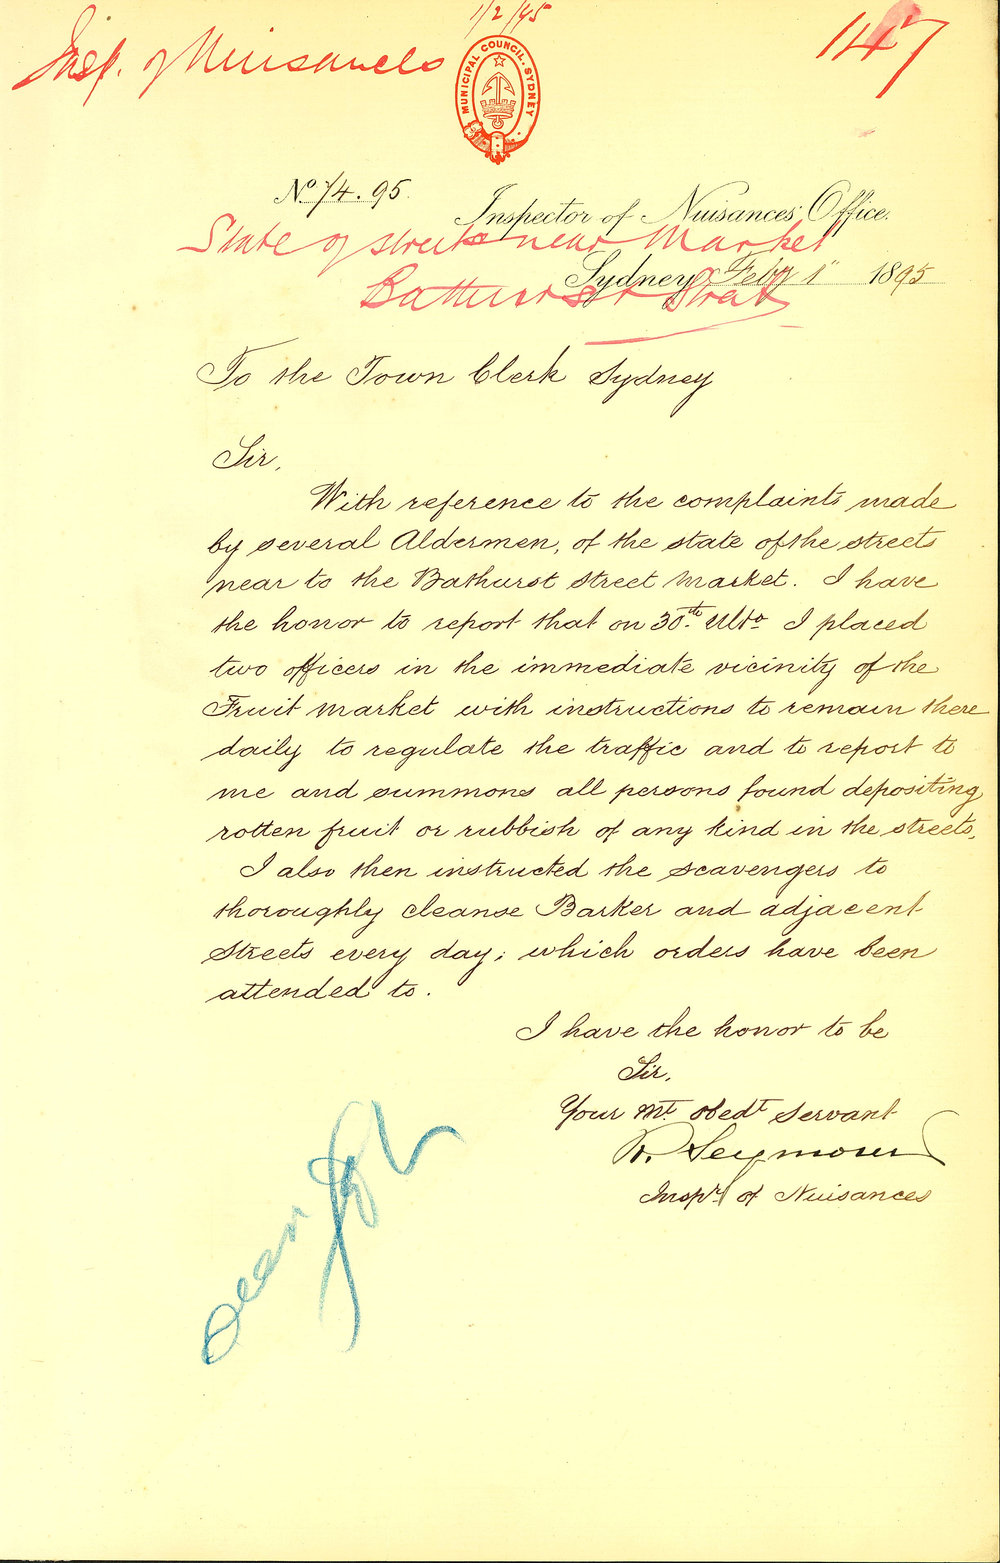 1/2/95
Insp. of Nuisances
147
MUNICIPAL COUNCIL. SYDNEY
No. 74.95.
Inspector of Nuisances' Office.
State of streets near Market
Sydney Feby 1st 1895
Bathurst Street
To the Town Clerk Sydney
Sir,
With reference to the complaints made
by several Aldermen, of the state of the streets
near to the Bathurst Street Market. I have
the honor to report that on 30th Ulto I placed
two officers in the immediate vicinity of the
Fruit Market with instructions to remain there
daily to regulate the traffic and to report to
me and summons all persons found depositing
rotten fruit or rubbish of any kind in the streets.
I also then instructed the scavengers to
thoroughly cleanse Barker and adjacent
Streets every day; which orders have been
attended to.
I have the honor to be
Sir,
Your Mt. Obedt Servant
R. Seymour
Inspr. of Nuisances
Seen